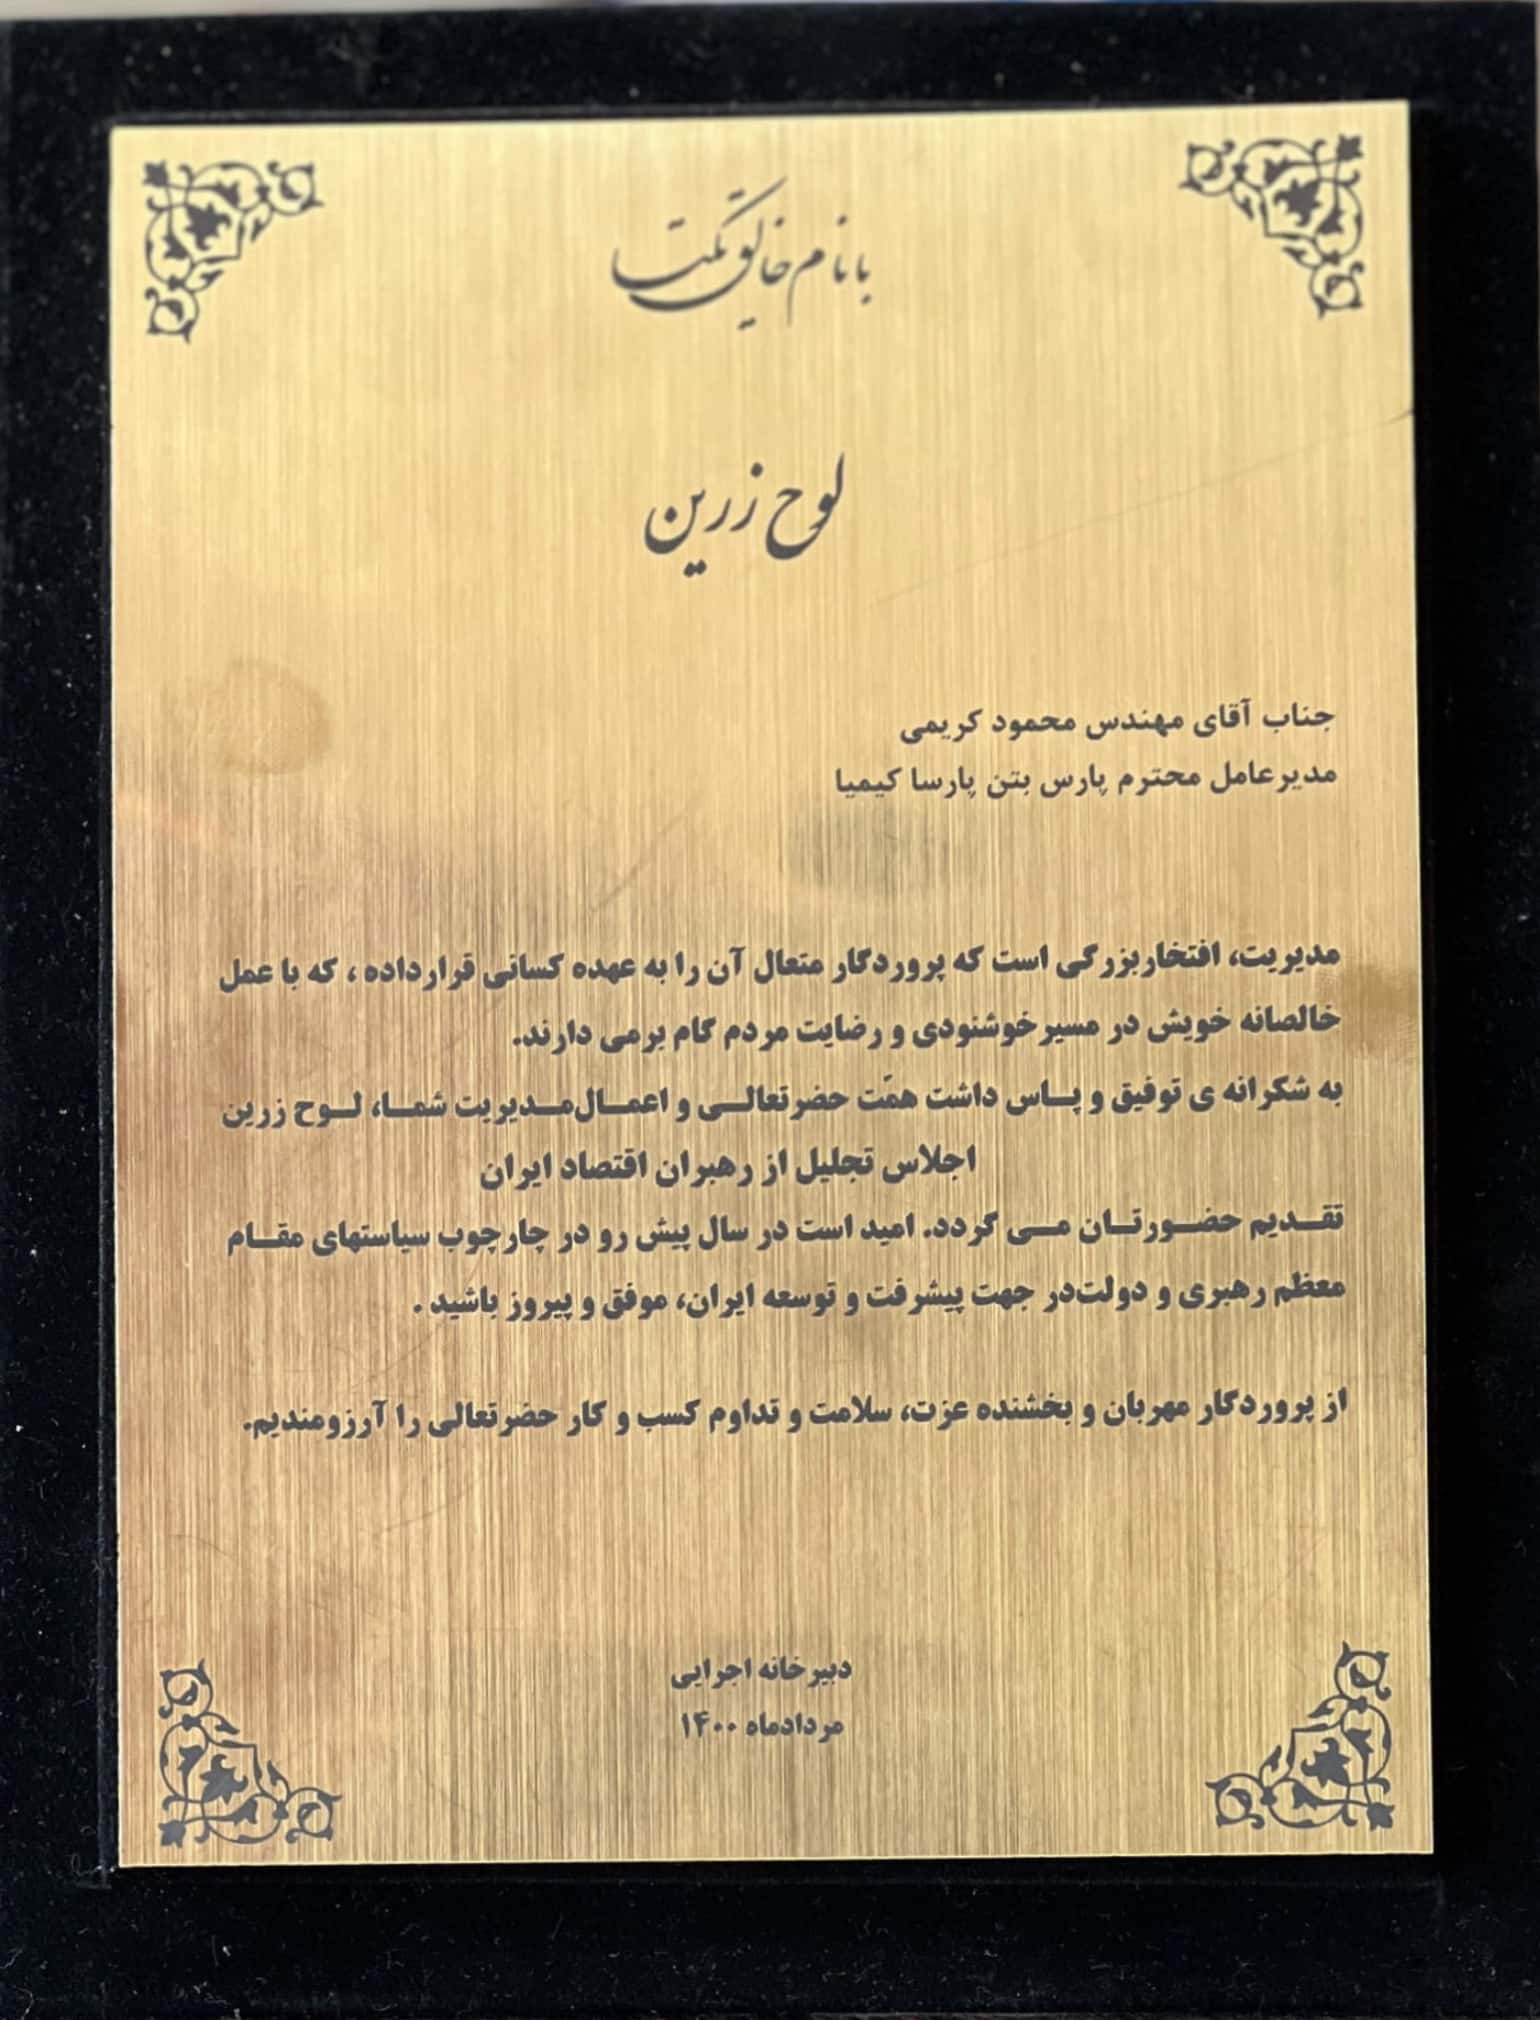 با نام خالق یکتا
لوح زرین
جناب آقای مهندس محمود کریمی
مدیرعامل محترم پارس بتن پارسا کیمیا
مدیریت، افتخاربزرگی است که پروردگار متعال آن را به عهده کسانی قرارداده ، که با عمل
خالصانه خویش در مسیرخوشنودی و رضایت مردم گام برمی دارند.
به شکرانه ی توفیق و پاس داشت همّت حضرتعالی و اعمال‌مدیریت شما، لوح زرین
اجلاس تجلیل از رهبران اقتصاد ایران
تقدیم حضورتان می گردد. امید است در سال پیش رو در چارچوب سیاستهای مقام
معظم رهبری و دولت‌در جهت پیشرفت و توسعه ایران، موفق و پیروز باشید .
از پروردگار مهربان و بخشنده عزت، سلامت و تداوم کسب و کار حضرتعالی را آرزومندیم.
دبیرخانه اجرایی
مردادماه ۱۴۰۰